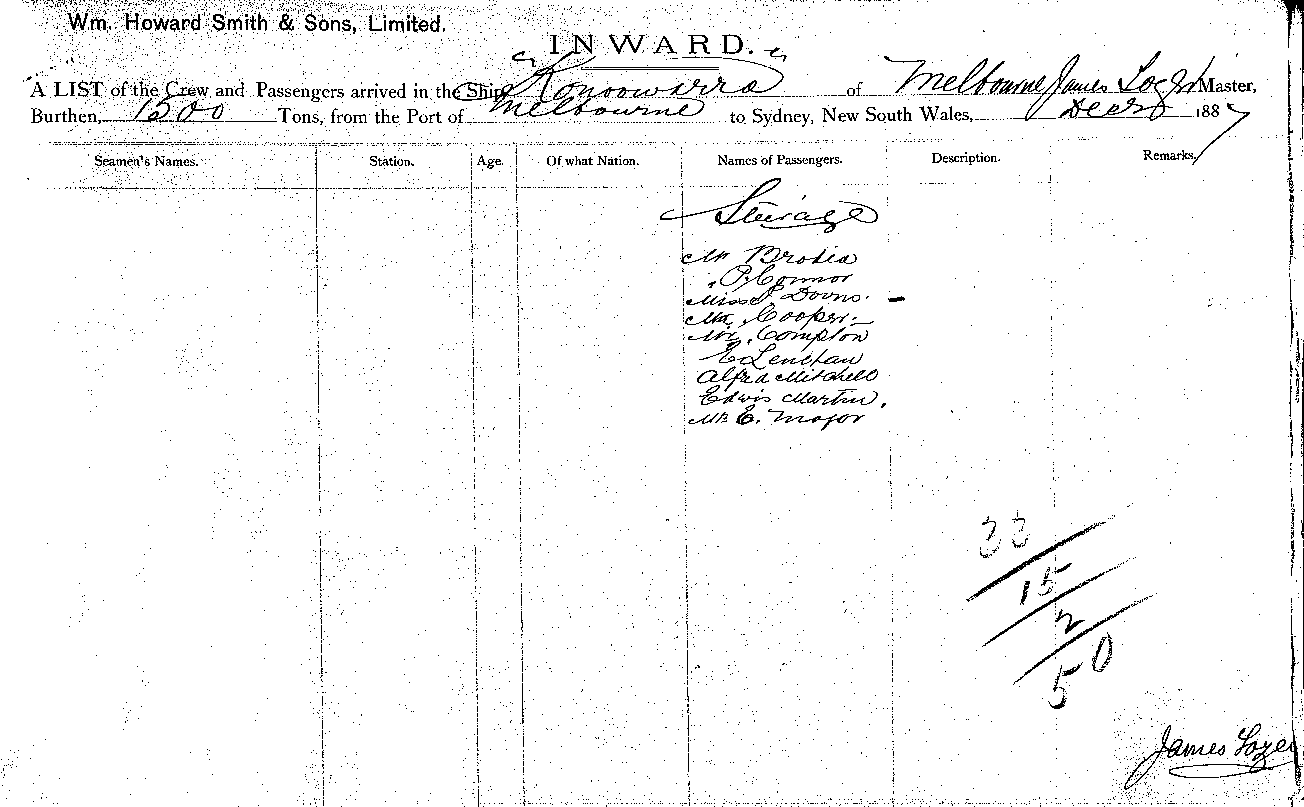 Wm. Howard Smith & Sons, Limited.
INWARD.
A LIST of the Crew and Passengers arrived in the Ship "Konoowarra" of Melbourne James Master,
Burthen, 1500 Tons, from the Port of Melbourne to Sydney, New South Wales, 1887
Seamen's Names. Station. Age. Of what Nation. Names of Passengers. Description. Remarks.
Steirage
Mr Brodia
" O'Connor
Miss Downs.
Cooper
Compton
E Lenehan
Alfrd Mitchell
Edwin Martin.
E. Major
33
15
2
50
James